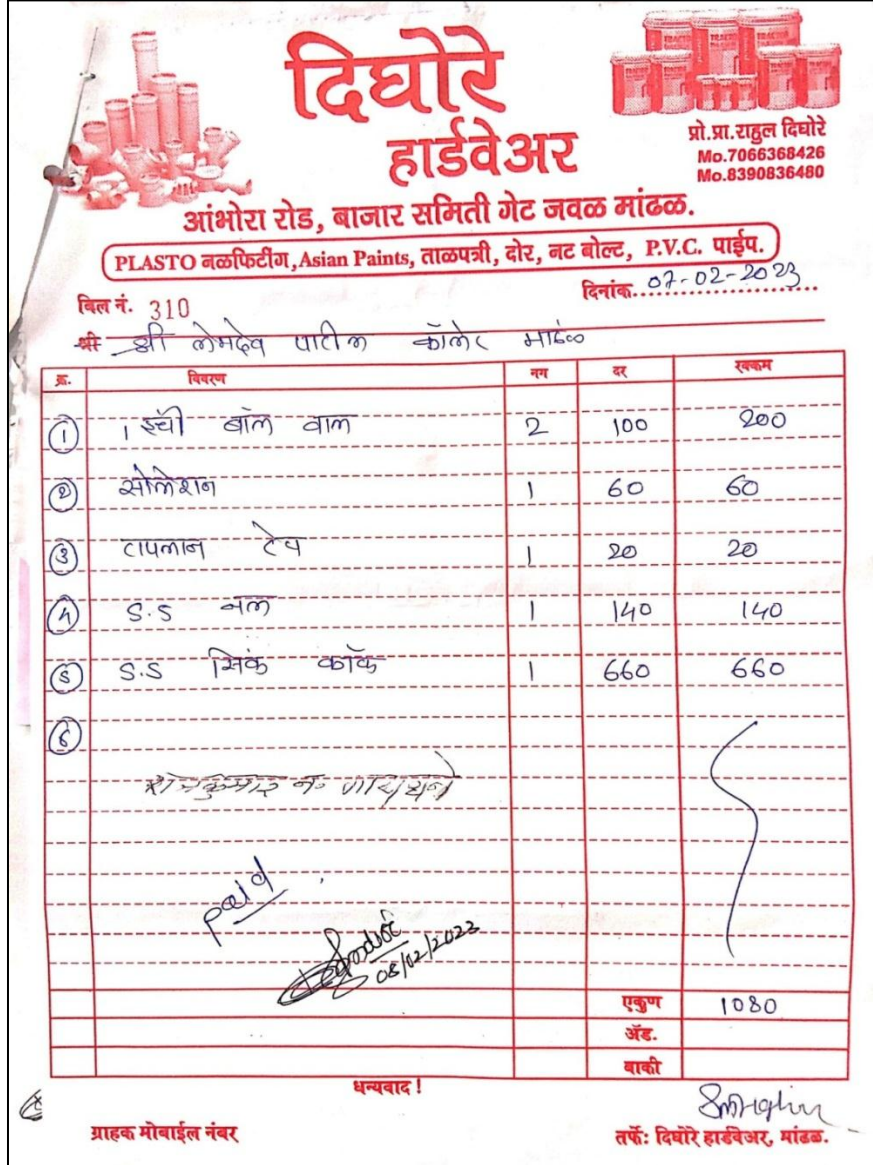 दिघोरे
हार्डवेअर
प्रो.प्रा.राहुल दिघोरे
Mo.7066368426
Mo.8390836480
आंभोरा रोड, बाजार समिती गेट जवळ मांढळ.
PLASTO नळफिटींग, Asian Paints, ताळपत्री, दोर, नट बोल्ट, P.V.C. पाईप.
बिल नं. 310 दिनांक. 07-02-2023
श्री श्री लेमदेव पाटील कॉलेर मांढळ
क्र. विवरण नग दर रक्कम
1 1 इंची बॉल वाल 2 100 200
2 सोलेशन 1 60 60
3 टापलान टेप 1 20 20
4 S.S नल 1 140 140
5 S.S सिंक कॉक 1 660 660
6
राजकुमार
paid
08/02/2023
एकुण 1080
अॅड.
बाकी
धन्यवाद !
ग्राहक मोबाईल नंबर तर्फे: दिघोरे हार्डवेअर, मांढळ.